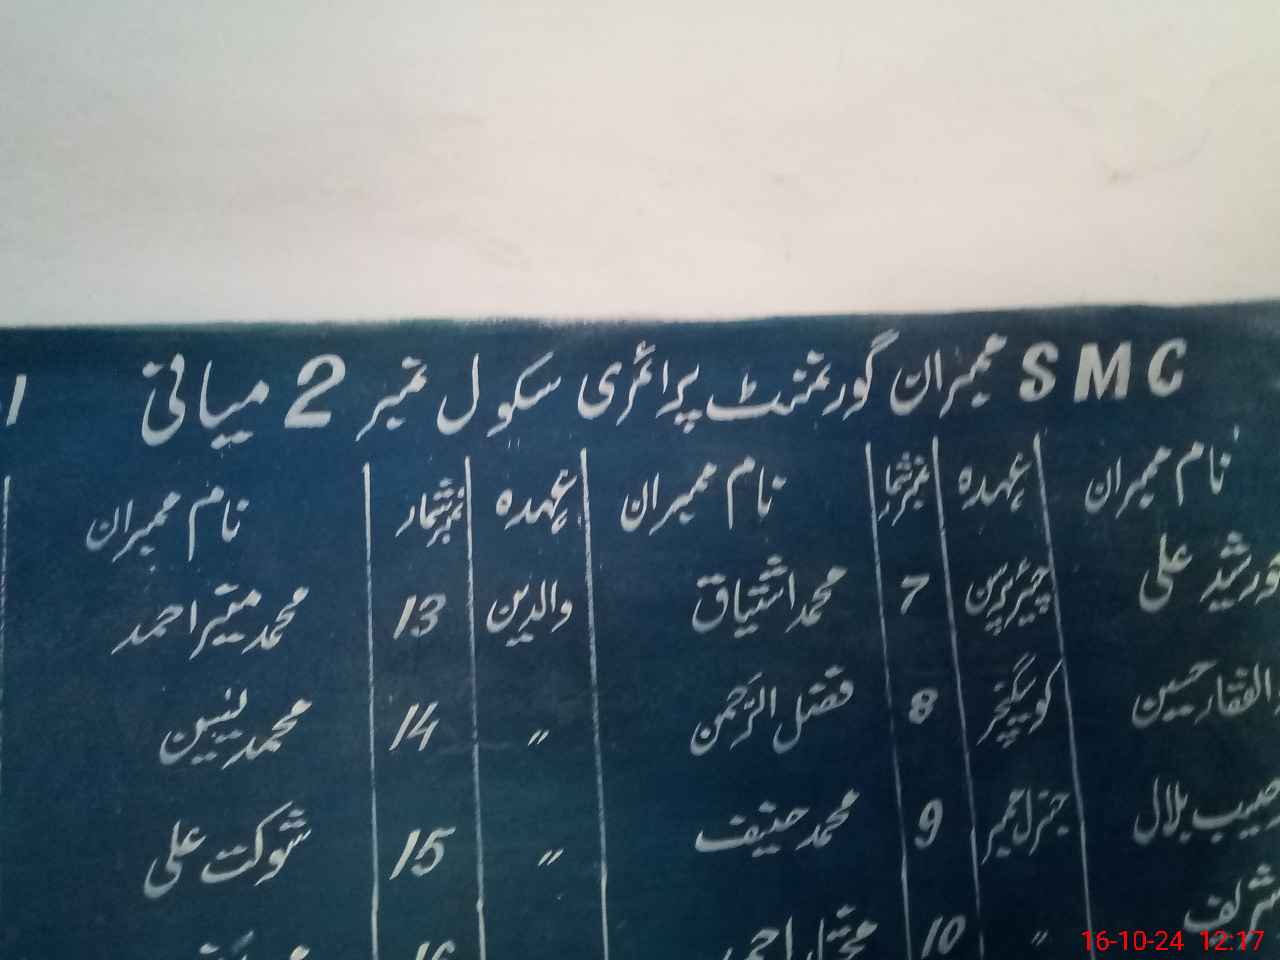 SMC ممبران گورنمنٹ پرائمری سکول نمبر 2 میانی
نام ممبران عہدہ نمبر شمار نام ممبران عہدہ نمبر شمار نام ممبران
خورشید علی چیئرپرسن 7 محمد اشتیاق والدین 13 محمد منیر احمد
الفقار حسین 8 فضل الرحمن " 14 محمد یسین
حبیب بلال جنرل ممبر 9 محمد حنیف " 15 شوکت علی
" 10 احمد 16
16-10-24 12:17